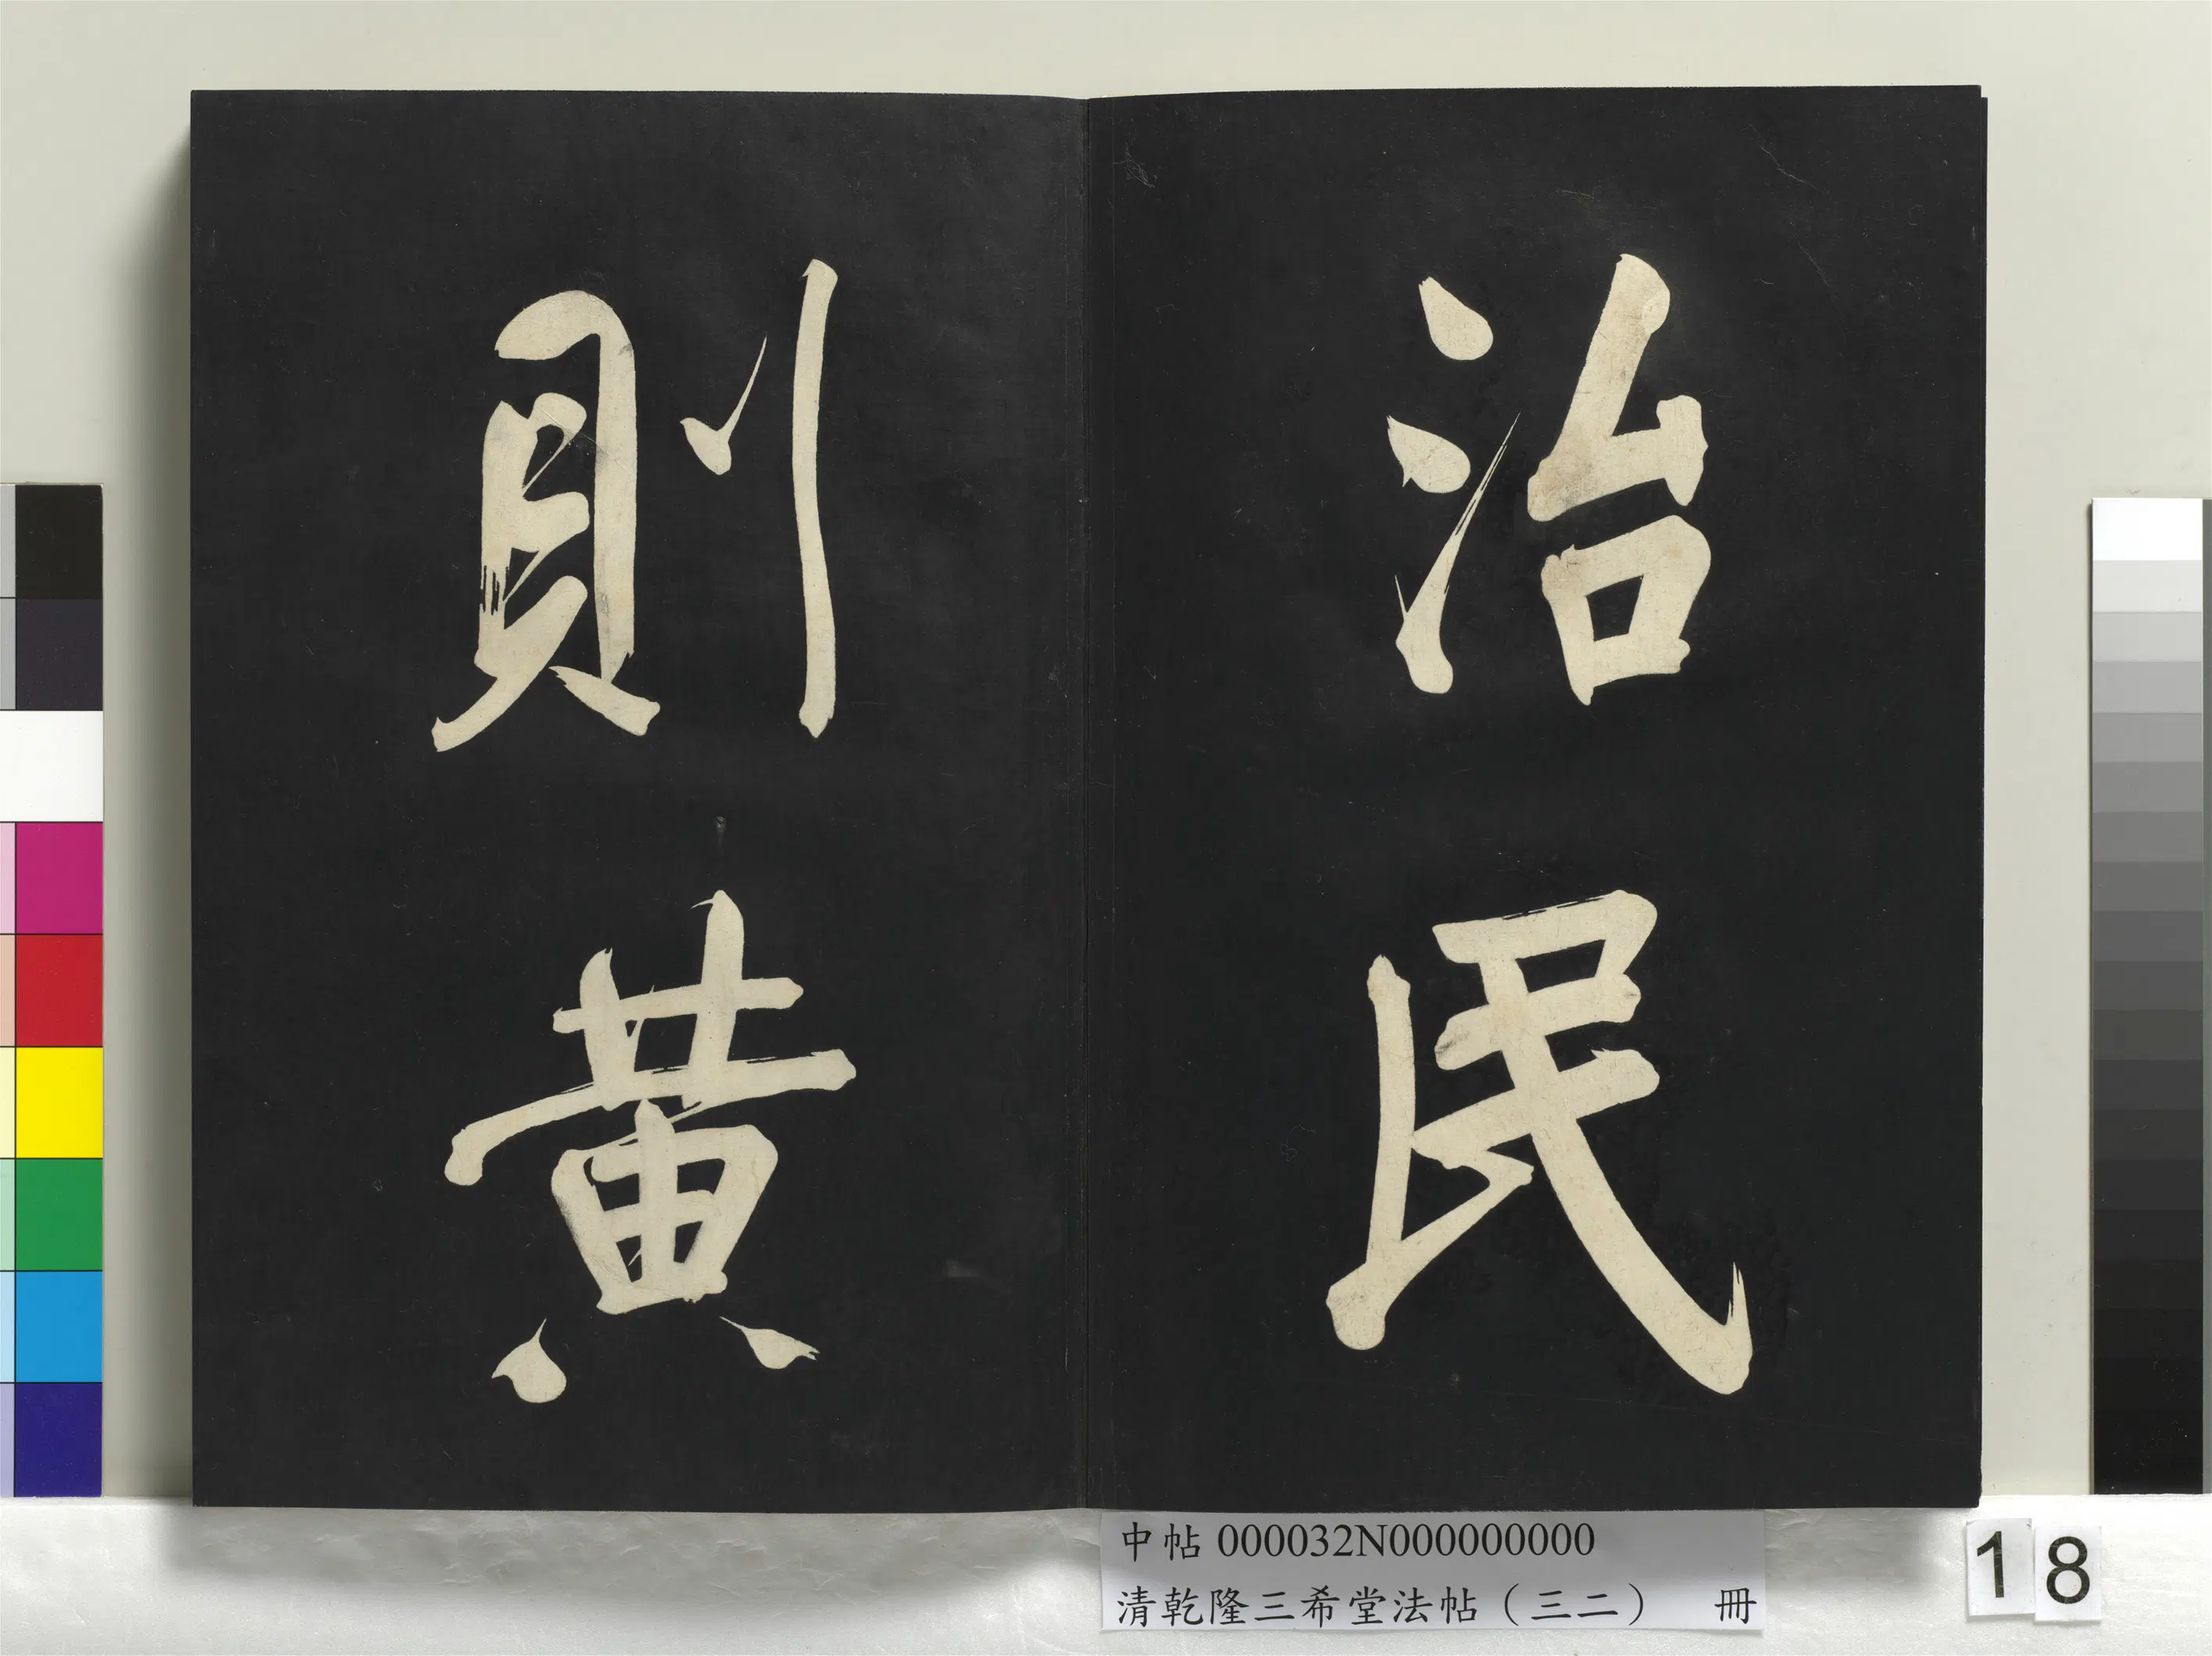 治民
則黃
中帖 000032N000000000
清乾隆三希堂法帖（三二） 冊
18